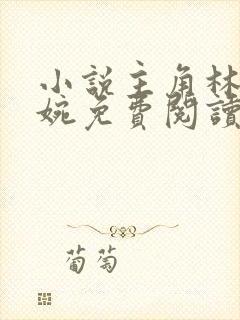 小說主角林
婉免費閱讀
葡萄